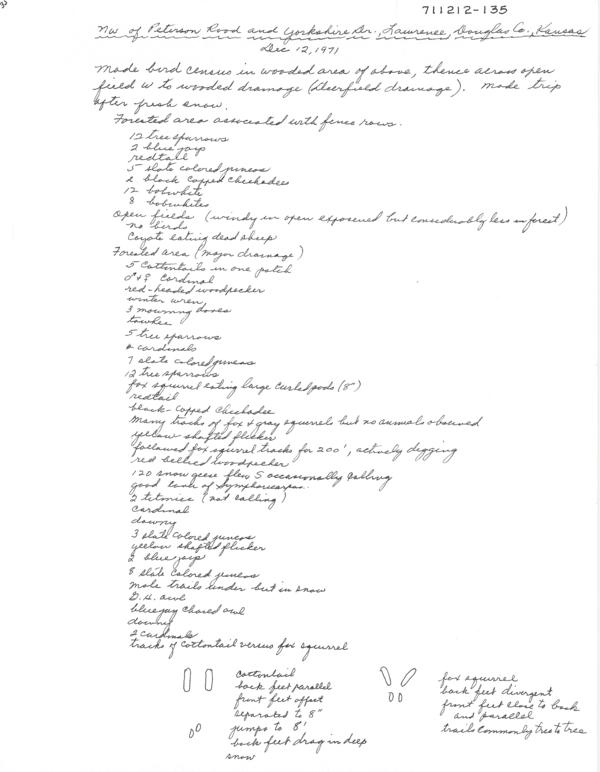 711212-135
NW of Peterson Road and Yorkshire Dr., Lawrence, Douglas Co., Kansas
Dec 12, 1971
Made bird census in wooded area of above, thence across open
field W to wooded drainage (Deerfield drainage). Made trip
after fresh snow.
Forested area associated with fence rows.
12 tree sparrows
2 blue jays
redtail
5 slate colored juncos
2 black capped chickadees
12 bobwhite
8 bobwhites
Open fields (windy in open exposed but considerably less in forest)
no birds
Coyote eating dead sheep
Forested area (major drainage)
5 cottontails in one patch
♂ + ♀ cardinal
red-headed woodpecker
winter wren,
3 mourning doves
towhee
5 tree sparrows
cardinals
7 slate colored juncos
12 tree sparrows
fox squirrel eating large curled pods (8")
redtail
black-capped chickadee
many tracks of fox & gray squirrels but no animals observed
yellow shafted flicker
followed fox squirrel tracks for 200', actively digging
red bellied woodpecker
120 snow geese flew S occasionally calling
good cover of Symphoricarpos.
2 titmice (not calling)
cardinal
downy
3 slate colored juncos
yellow shafted flicker
2 blue jays
8 slate colored juncos
mole trails under but in snow
G.H. owl
bluejay chased owl
downy
2 cardinals
tracks of cottontail versus fox squirrel
cottontail
back feet parallel
front feet offset
separated to 8"
jumps to 8'
back feet drag in deep
snow
fox squirrel
back feet divergent
front feet close to back
and parallel
trails commonly tree to tree